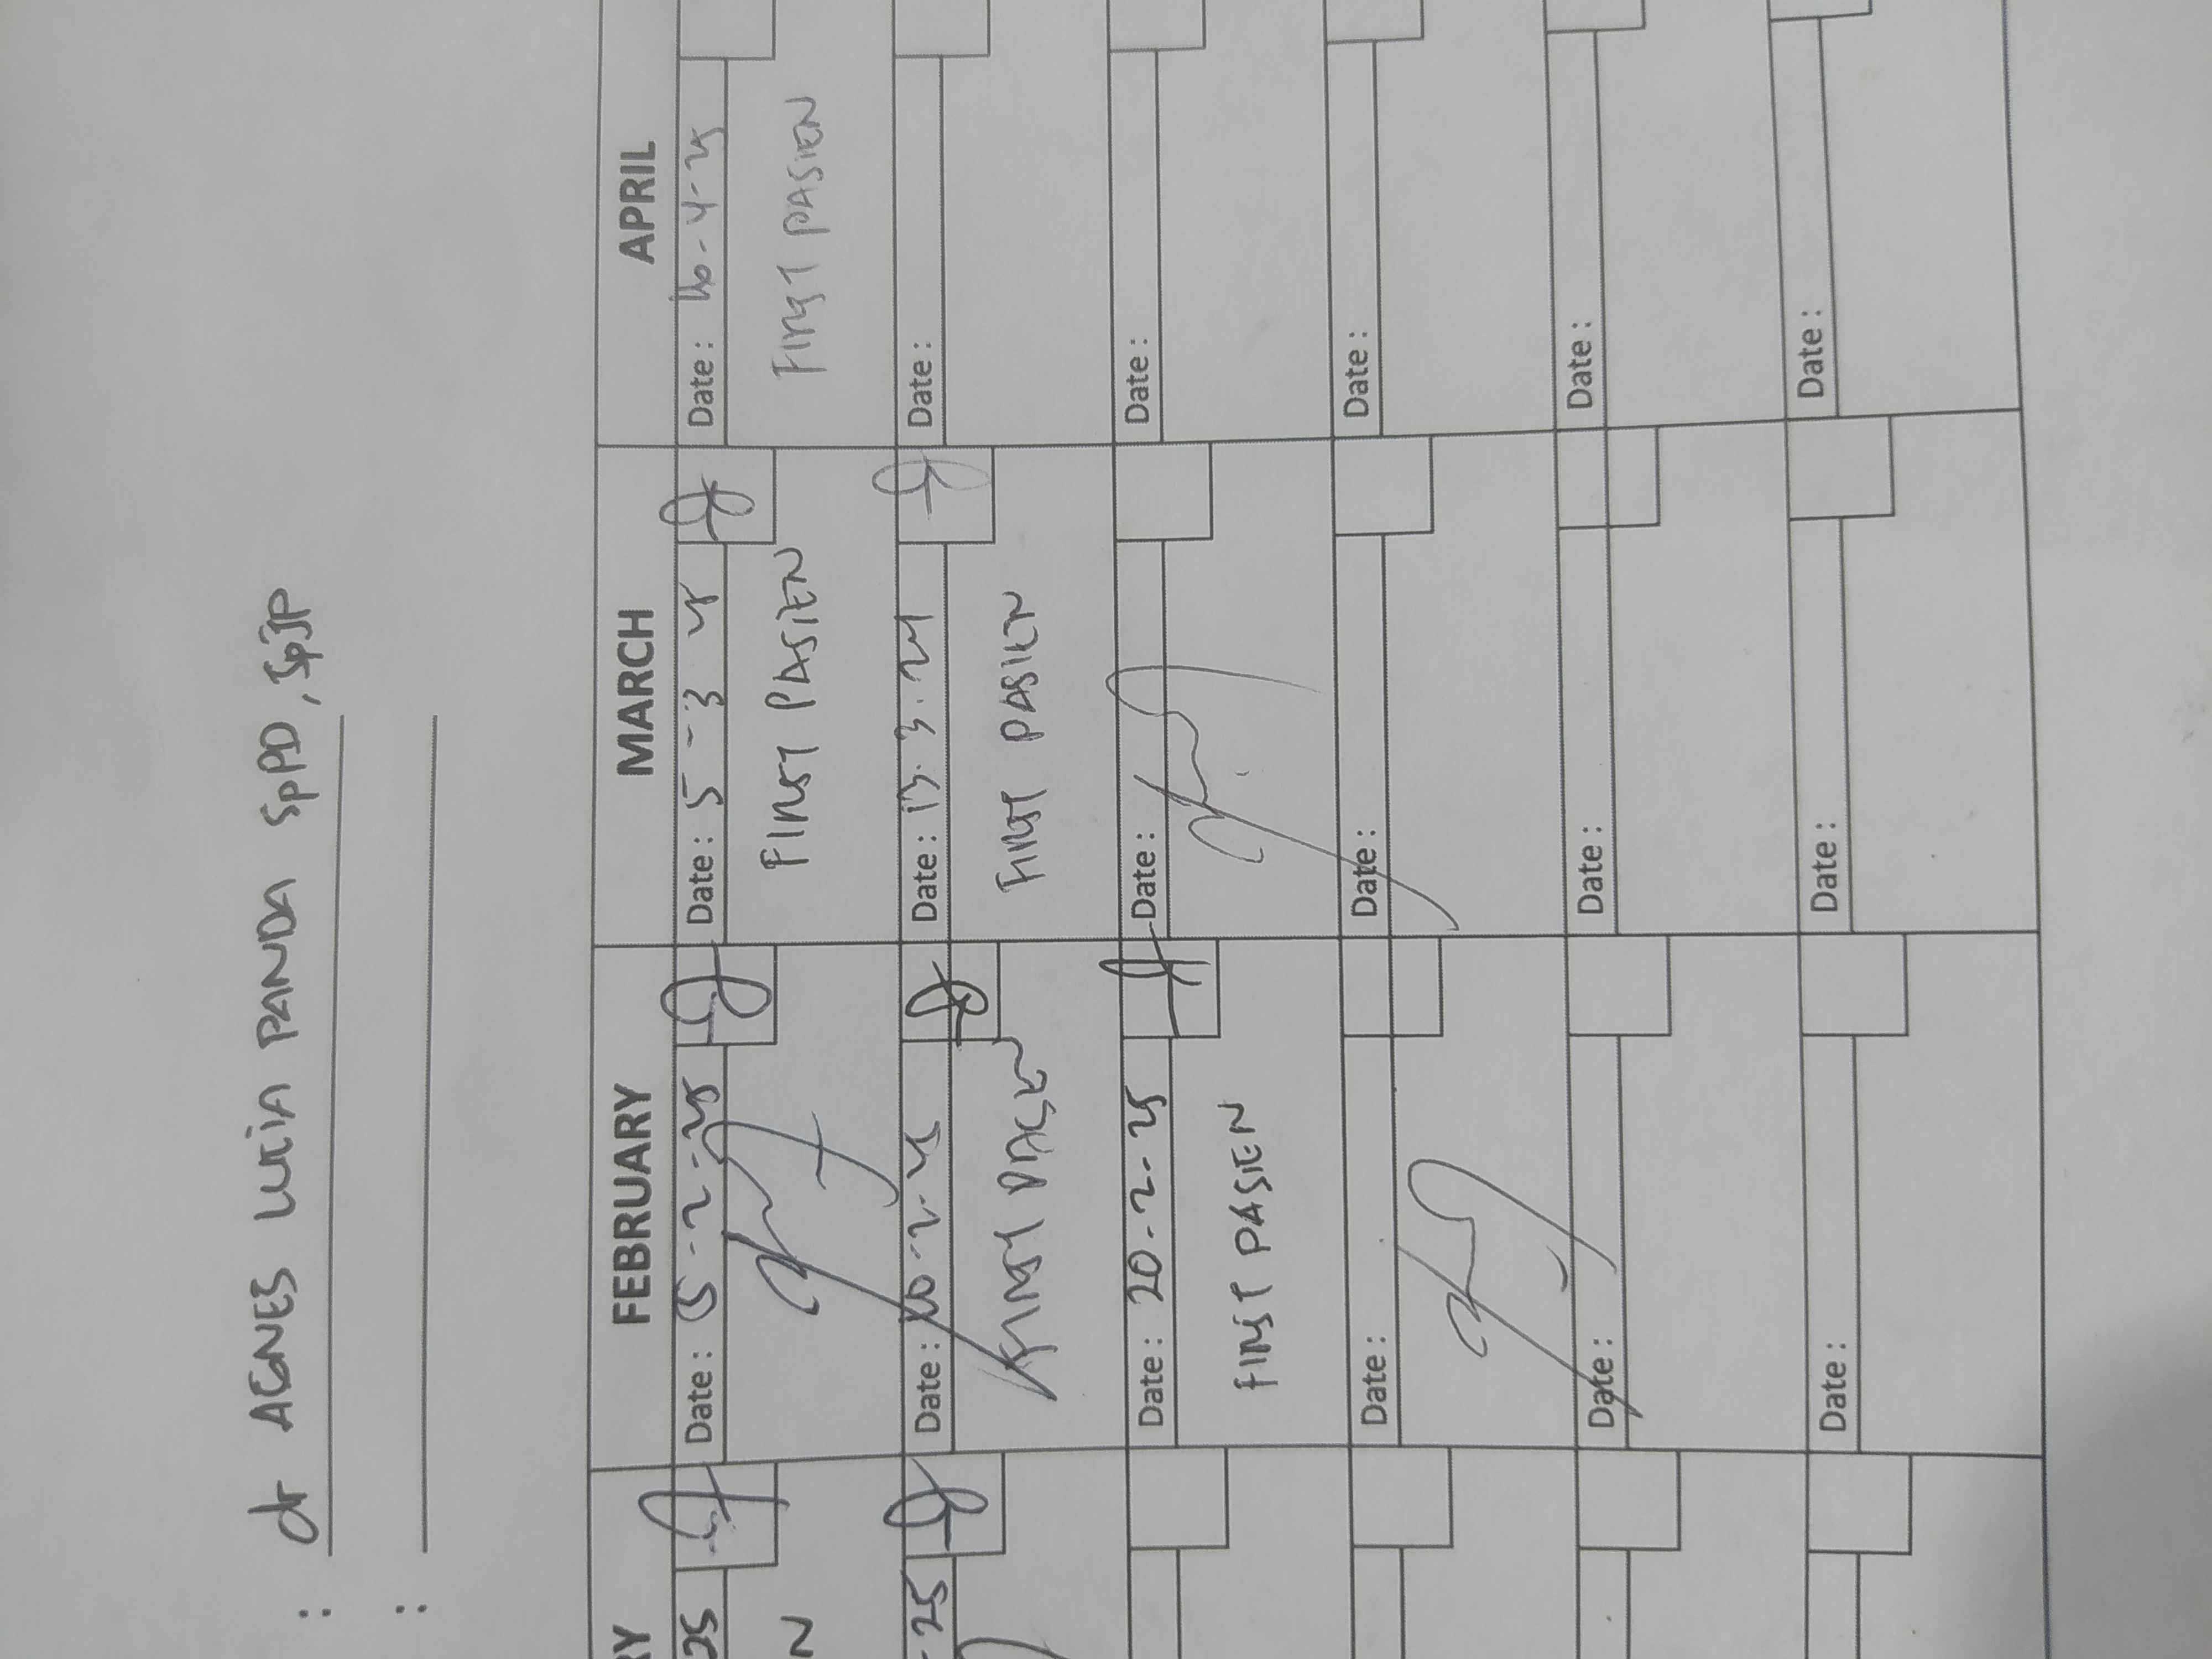 : dr AGNES LUCIA PANDA SpPD, SpJP
:
RY FEBRUARY MARCH APRIL
25 Date: -2-25 Date: 5-3 25 Date: 16-4-25
N FIRST PASIEN FIRST PASIEN
-25 Date: 10-2-25 Date: 13.3.25 Date:
FIRST PASIEN FIRST PASIEN
Date: 20-2-25 Date: Date:
FIRST PASIEN
Date: Date: Date:
Date: Date: Date:
Date: Date: Date: